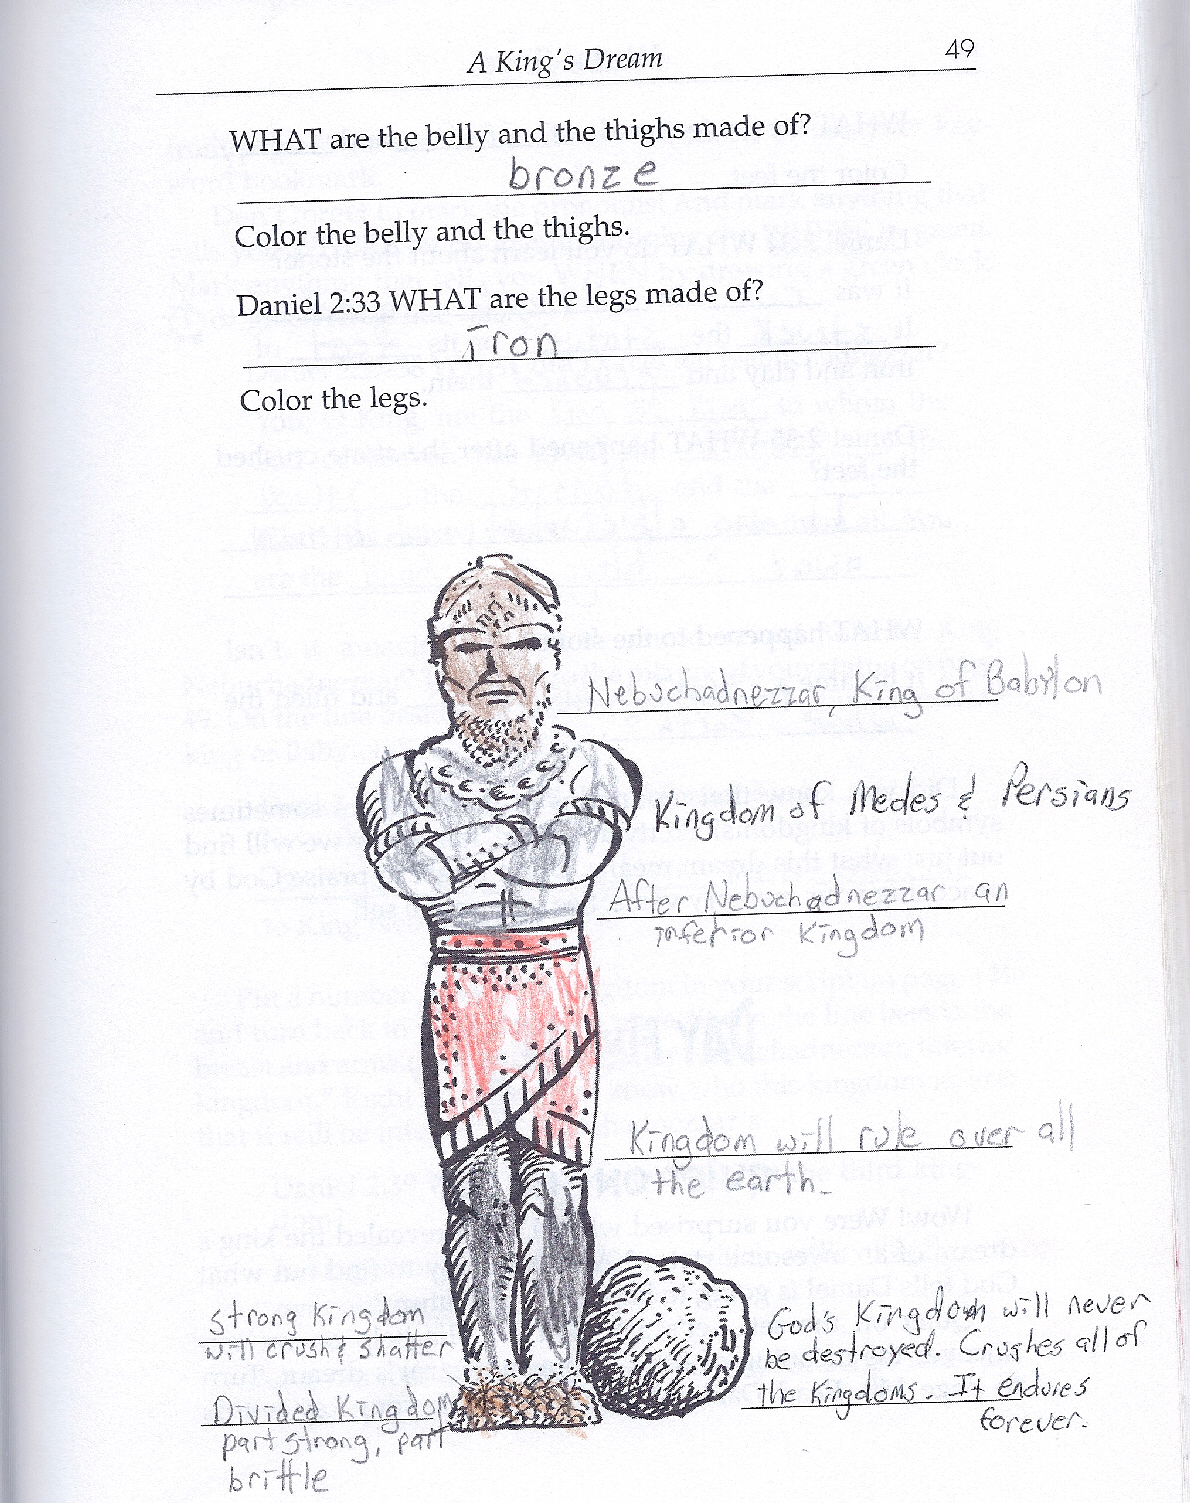 A King's Dream
49
WHAT are the belly and the thighs made of?
bronze
Color the belly and the thighs.
Daniel 2:33 WHAT are the legs made of?
iron
Color the legs.
Nebuchadnezzar, King of Babylon
Kingdom of Medes & Persians
After Nebuchadnezzar an
inferior Kingdom
Kingdom will rule over all
the earth.
strong Kingdom
will crush & shatter
God's Kingdom will never
be destroyed. Crushes all of
the Kingdoms. It endures
forever.
Divided Kingdom
part strong, part
brittle